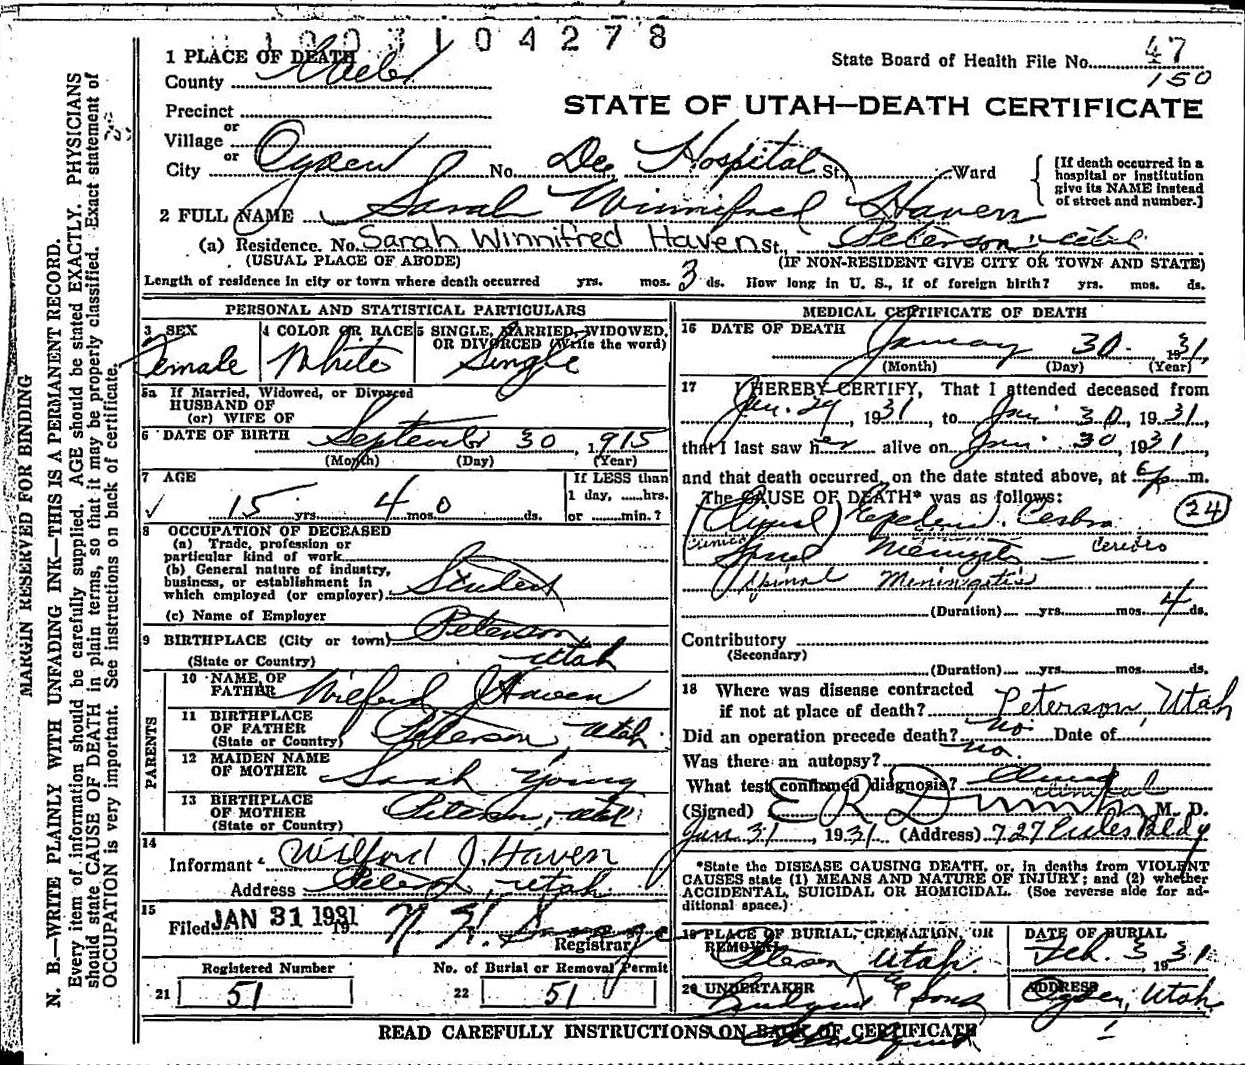 1003104278
1 PLACE OF DEATH
County Weber
State Board of Health File No. 47
150
Precinct
or
Village
or
STATE OF UTAH—DEATH CERTIFICATE
City Ogden No. Dee Hospital St., Ward
[If death occurred in a hospital or institution give its NAME instead of street and number.]
2 FULL NAME Sarah Winnifred Haven
(a) Residence. No. Sarah Winnifred Haven St., Peterson, Utah
(USUAL PLACE OF ABODE) (IF NON-RESIDENT GIVE CITY OR TOWN AND STATE)
Length of residence in city or town where death occurred yrs. mos. 3 ds. How long in U. S., if of foreign birth? yrs. mos. ds.
PERSONAL AND STATISTICAL PARTICULARS
3 SEX
Female
4 COLOR OR RACE
White
5 SINGLE, MARRIED, WIDOWED, OR DIVORCED (Write the word)
Single
5a If Married, Widowed, or Divorced
HUSBAND OF
(or) WIFE OF
6 DATE OF BIRTH September 30, 1915
(Month) (Day) (Year)
7 AGE
15 yrs. 4 mos. 0 ds.
If LESS than
1 day, ......hrs.
or ......min.?
8 OCCUPATION OF DECEASED
(a) Trade, profession or
particular kind of work
(b) General nature of industry,
business, or establishment in
which employed (or employer) Student
(c) Name of Employer
9 BIRTHPLACE (City or town) Peterson
(State or Country) Utah
PARENTS
10 NAME OF
FATHER Wilford J Haven
11 BIRTHPLACE
OF FATHER Peterson, Utah
(State or Country)
12 MAIDEN NAME
OF MOTHER Sarah Young
13 BIRTHPLACE
OF MOTHER Peterson, Utah
(State or Country)
14
Informant Wilford J. Haven
Address Peterson, Utah
15
Filed JAN 31 1931 19
Registrar
Registered Number
21 51
No. of Burial or Removal Permit
22 51
MEDICAL CERTIFICATE OF DEATH
16 DATE OF DEATH
January 30 1931
(Month) (Day) (Year)
17 I HEREBY CERTIFY, That I attended deceased from
Jan. 29, 1931, to Jan. 30, 1931,
that I last saw her alive on Jan. 30, 1931,
and that death occurred, on the date stated above, at 6 p m.
The CAUSE OF DEATH* was as follows:
(Clinical) Cerebro 24
(clinical) Cerebro
Spinal Meningitis
(Duration) yrs. mos. 4 ds.
Contributory
(Secondary)
(Duration) yrs. mos. ds.
18 Where was disease contracted
if not at place of death? Peterson, Utah
Did an operation precede death? No Date of
Was there an autopsy? no
What test confirmed diagnosis? Clinical
clinical
(Signed) E R Dumke M. D.
Jan 31, 1931 (Address) 727 Eccles Bldg
*State the DISEASE CAUSING DEATH, or, in deaths from VIOLENT
CAUSES state (1) MEANS AND NATURE OF INJURY; and (2) whether
ACCIDENTAL, SUICIDAL OR HOMICIDAL. (See reverse side for ad-
ditional space.)
19 PLACE OF BURIAL, CREMATION, OR
REMOVAL
Peterson, Utah
DATE OF BURIAL
Feb. 3, 1931
20 UNDERTAKER
Lindquist & Sons
ADDRESS
Ogden, Utah
READ CAREFULLY INSTRUCTIONS ON BACK OF CERTIFICATE
MARGIN RESERVED FOR BINDING
N. B.—WRITE PLAINLY WITH UNFADING INK—THIS IS A PERMANENT RECORD.
Every item of information should be carefully supplied. AGE should be stated EXACTLY. PHYSICIANS
should state CAUSE OF DEATH in plain terms, so that it may be properly classified. Exact statement of
OCCUPATION is very important. See instructions on back of certificate.